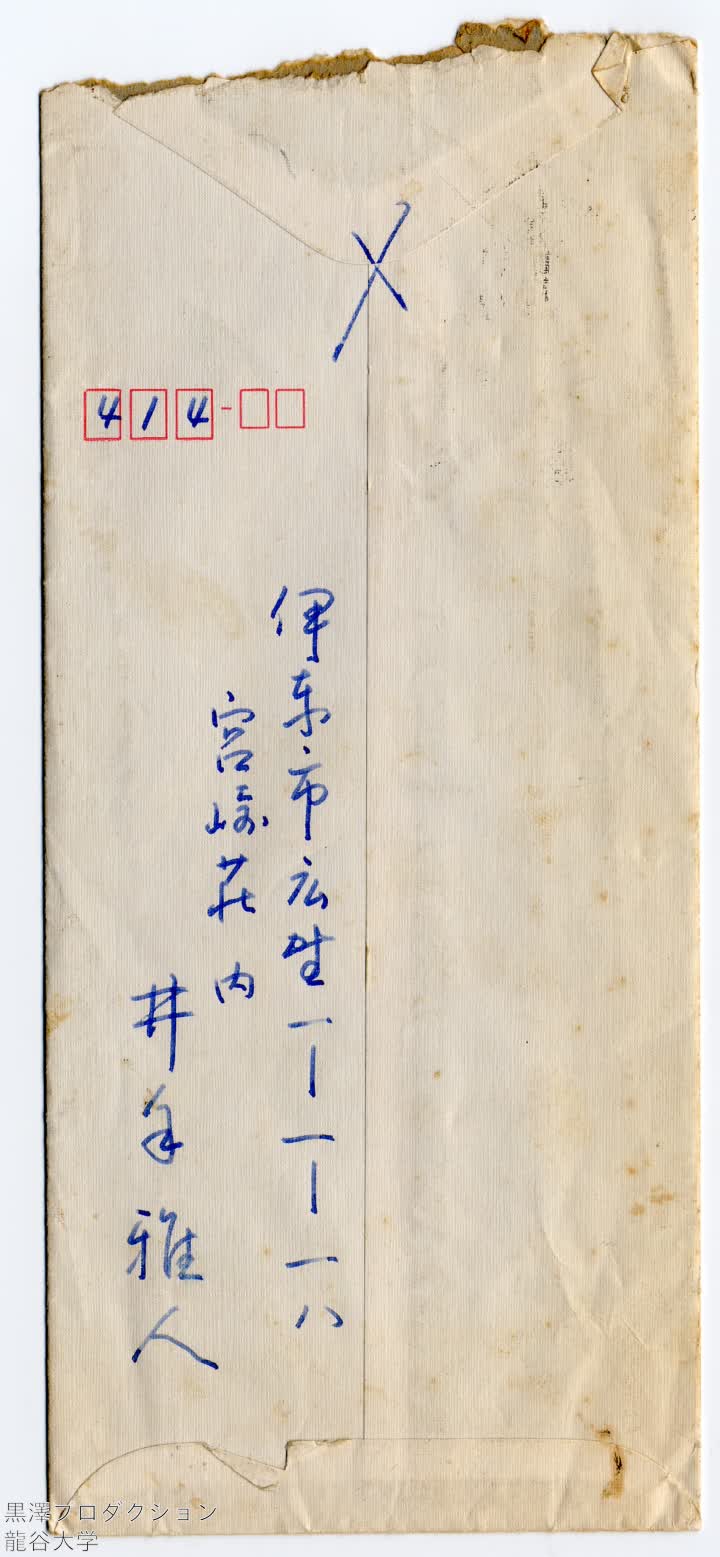 414-
伊東市広野一ー一ー一八
宮崎荘内
井手雅人
黒澤プロダクション
龍谷大学